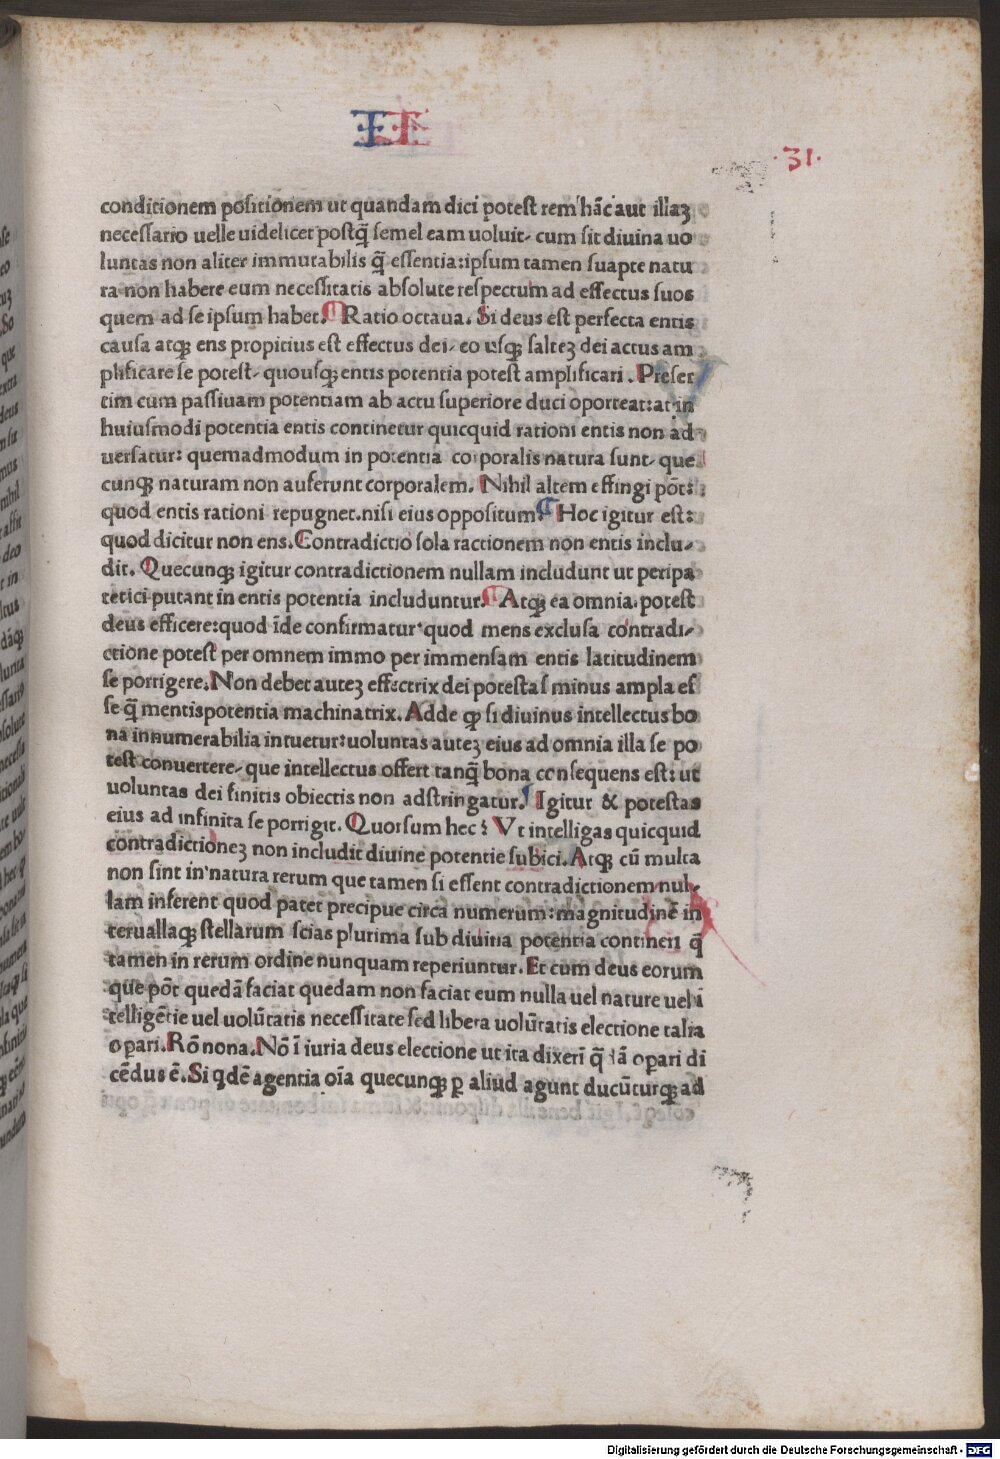 II
·31·
conditionem positionem ut quandam dici potest rem hãc aut illaꝫ
necessario uelle uidelicet postq̃ semel eam uoluit. cum sit diuina uo
luntas non aliter immutabilis q̃ essentia:ipsum tamen suapte natu
ra non habere eum necessitatis absolute respectum ad effectus suos
quem ad se ipsum habet. ¶ Ratio octaua. Si deus est perfecta entis
causa atqꝫ ens propitius est effectus dei. eo usqꝫ salteꝫ dei actus am
plificare se potest. quousqꝫ entis potentia potest amplificari. Preser
tim cum passiuam potentiam ab actu superiore duci oporteat:at in
huiusmodi potentia entis continetur quicquid rationi entis non ad
uersatur: quemadmodum in potentia corporalis natura sunt. que
cunqꝫ naturam non auferunt corporalem. Nihil altem effingi põt:
quod entis rationi repugnet.nisi eius oppositum. ¶ Hoc igitur est:
quod dicitur non ens. Contradictio sola ractionem non entis inclu-
dit. Quecunqꝫ igitur contradictionem nullam includunt ut peripa
tetici putant in entis potentia includuntur. ¶ Atqꝫ ea omnia potest
deus efficere:quod ĩde confirmatur quod mens exclusa contradi-
ctione potest per omnem immo per immensam entis latitudinem
se porrigere. Non debet auteꝫ effectrix dei potestas minus ampla es
se q̃ mentis potentia machinatrix. Adde qꝫ si diuinus intellectus bo
na innumerabilia intuetur:uoluntas auteꝫ eius ad omnia illa se po
test conuertere. que intellectus offert tanq̃ bona consequens est: ut
uoluntas dei finitis obiectis non adstringatur. Igitur & potestas
eius ad infinita se porrigit. Quorsum hec? Vt intelligas quicquid
contradictioneꝫ non includit diuine potentie subici. Atqꝫ cũ multa
non sint in natura rerum que tamen si essent contradictionem nul-
lam inferent quod patet precipue circa numerum:magnitudinẽ in
teruallaqꝫ stellarum scias plurima sub diuina potentia contineri q̃
tamen in rerum ordine nunquam reperiuntur. Et cum deus eorum
que põt quedã faciat quedam non faciat eum nulla uel nature uel ĩ
telligẽtie uel uolũtatis necessitate sed libera uolũtatis electione talia
operari. Rõ nona. Nõ ĩ iuria deus electione ut ita dixerĩ q̃ iã operari di
cẽdus ẽ. Si qdẽ agentia oĩa quecunqꝫ p aliud agunt ducũturqꝫ ad
Digitalisierung gefördert durch die Deutsche Forschungsgemeinschaft - DFG